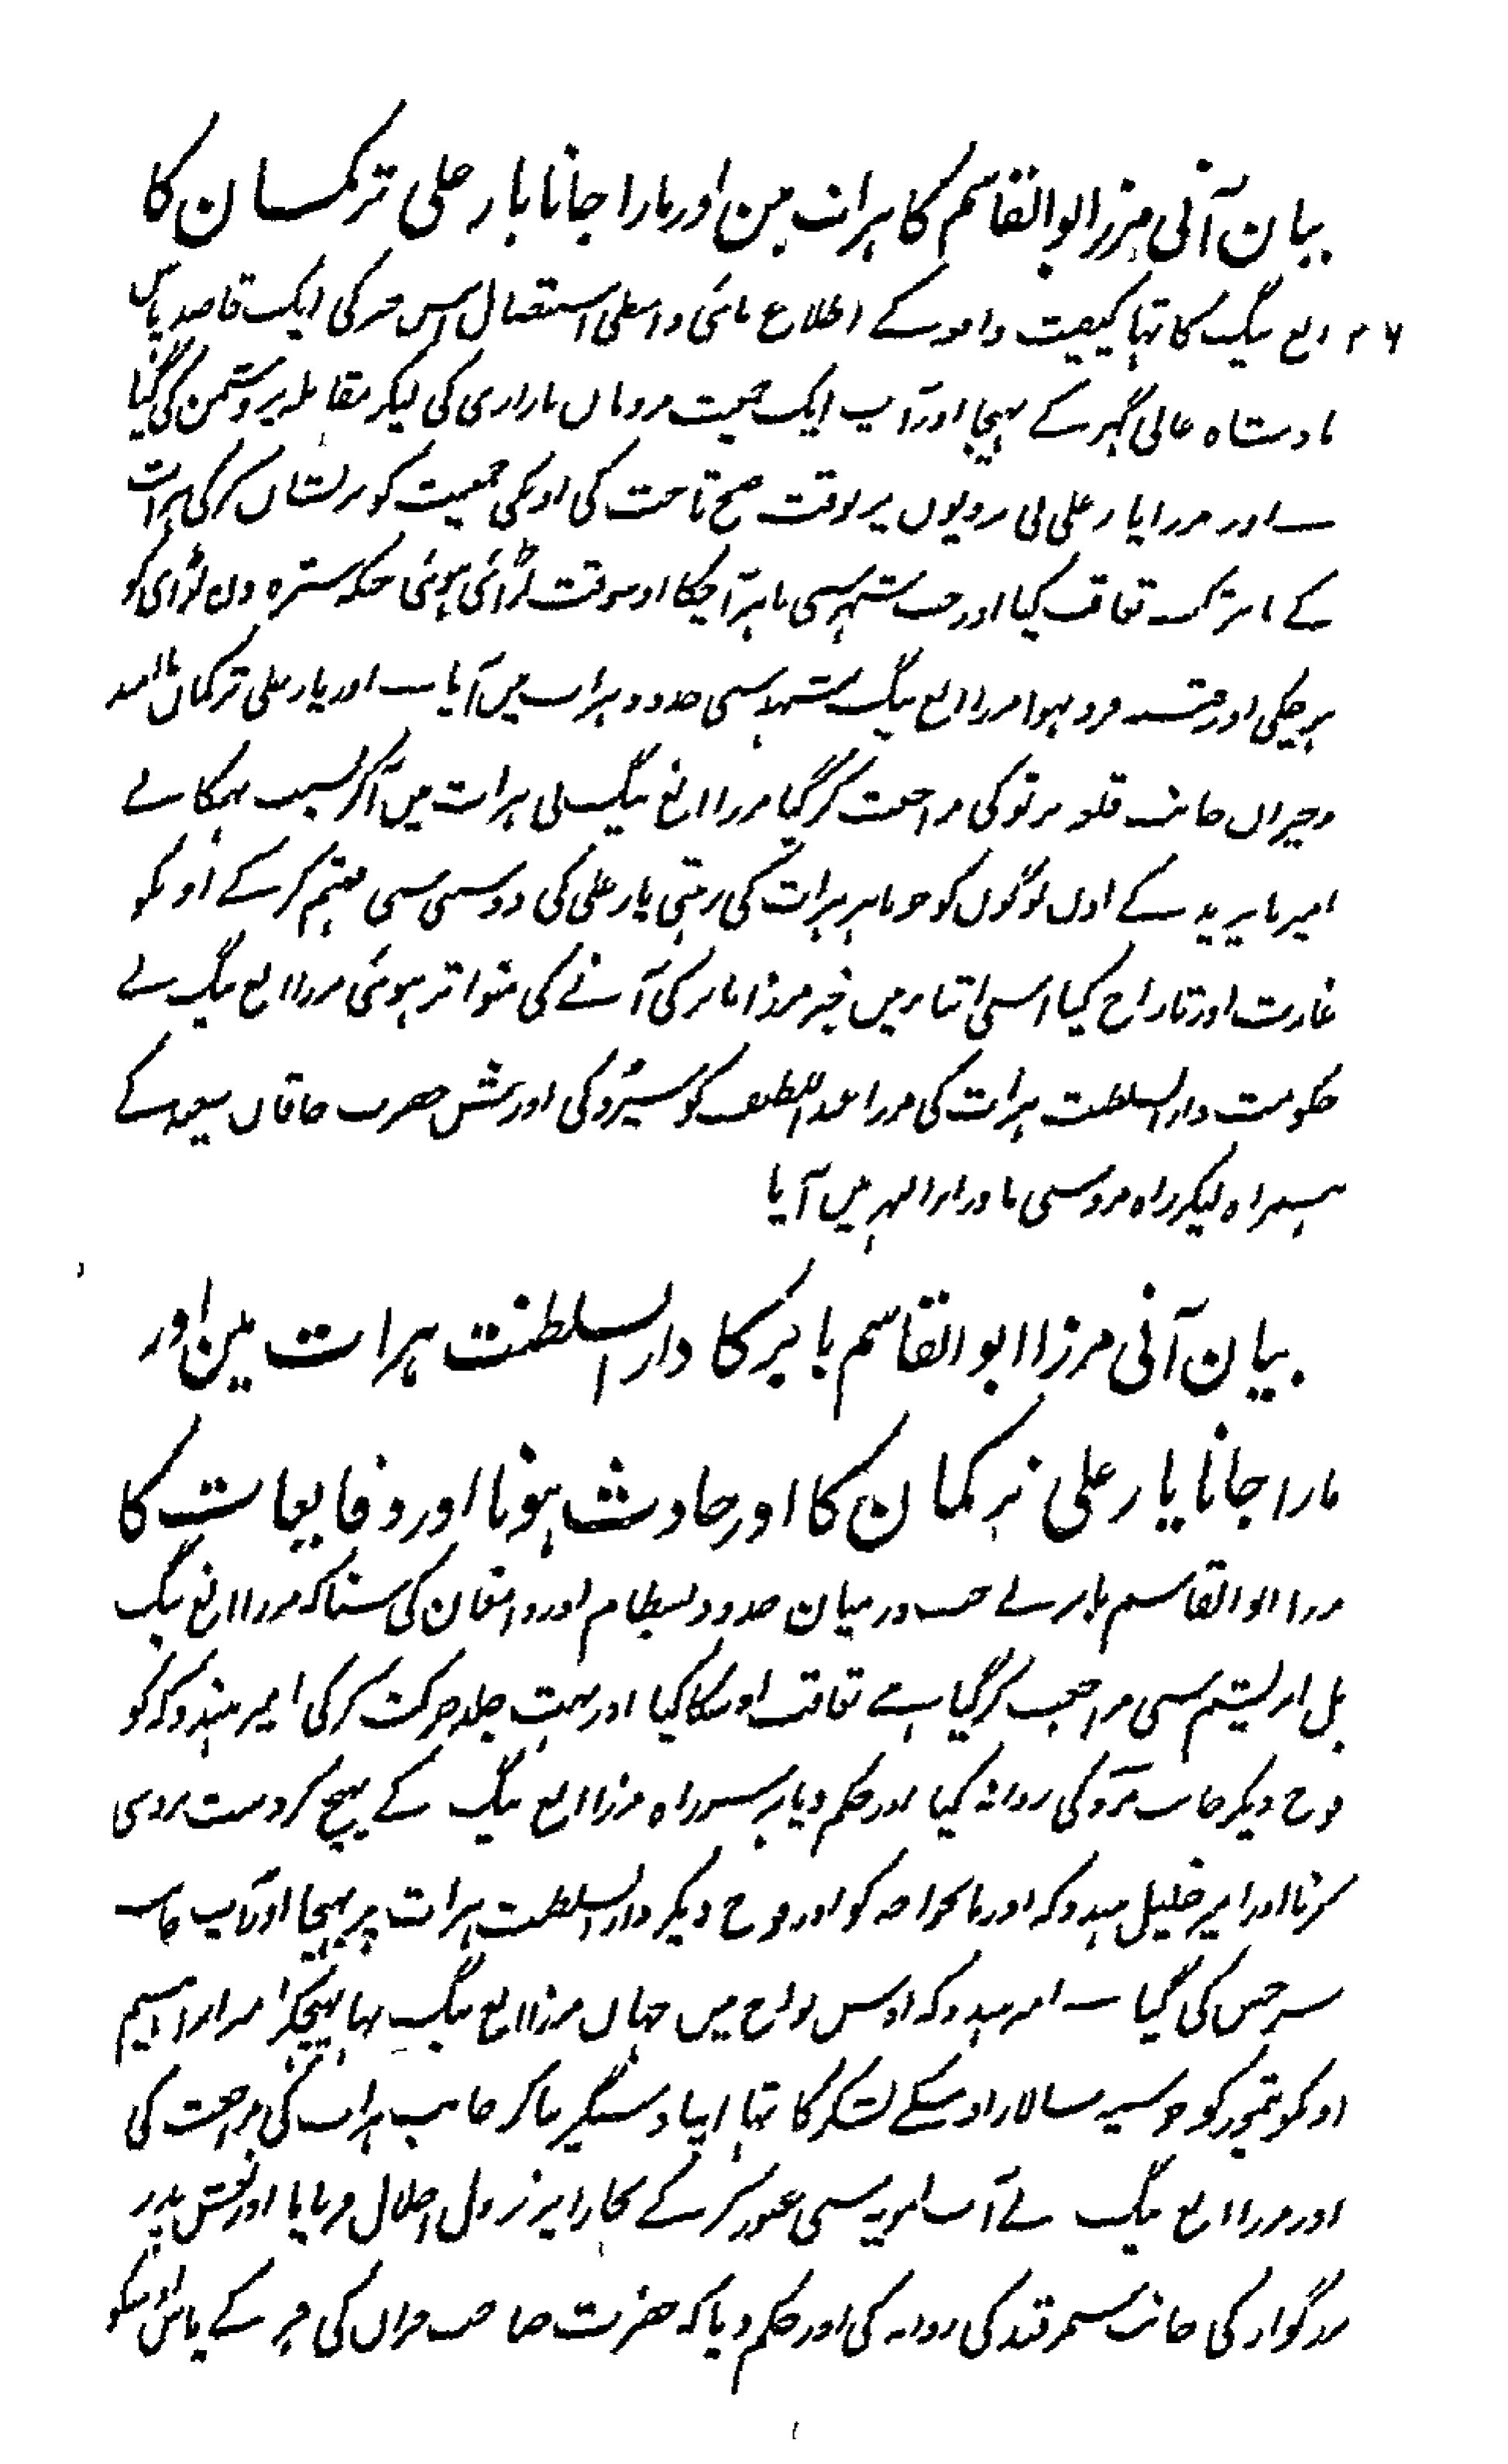 بیان آنی مرزا ابوالقاسم کا ہرات مین اور مارا جانا یار علی ترکمان کا
الغ بیگ کا تہا کیفیت واقعہ کے اطلاع پائی واسطی استقبال اس خبر کی ایک قاصد پاس
بادشاہ عالی گہر کے بہیجا اور آپ ایک جمعیت مردمان بازاری کی لیکر مقابلہ پر دشمن کی گیا
اور مرزا یار علی نی بوقت صبح تاخت کی اونکی جمعیت کو پریشان کر کی ہرات
کے تک تعاقب کیا اور جب شہر سی باہر آچکا اوسوقت لڑائی ہوئی جبکہ سترہ دن لڑای کو
ہوچکی اور فتنہ فرو ہوا مرزا الغ بیگ مشہد سی حدود ہرات میں آیا اور یار علی ترکمان ناامید
وحیران جانب قلعہ نرتو کی مراجعت کر گیا مرزا الغ بیگ نی ہرات میں آکر بسبب بہکانے
امیر بایزید کے اون لوگوں کو جو باہر ہرات کی رہتی یار علی کی دوستی سی متہم کر کے اونکو
غارت اور تاراج کیا اسی اثنا میں خبر مرزا بابر کی آنے کی متواتر ہوئی مرزا الغ بیگ نے
حکومت دارالسلطنت ہرات کی مرزا عبداللطیف کو سپرد کی اور نعش حضرت خاقان سعید کے
ہمراہ لیکر راہ مرو سی ماوراءالنہر میں آیا
بیان آنی مرزا ابوالقاسم بابر کا دارالسلطنت ہرات مین اور
مارا جانا یار علی ترکمان کا اور حادث ہونا اور وقایعات کا
مرزا ابوالقاسم بابر نے جب درمیان حدود بسطام اور دامغان کی سنا کہ مرزا الغ بیگ
پل ابریشم سی مراجعت کر گیا ہے تعاقب اوسکا کیا اور بہت جلد حرکت کر کی امیر ہندوکہ کو
فوج دیکر جانب مرو کی روانہ کیا اور حکم دیا بر سر راہ مرزا الغ بیگ کے پہنچ کر دست بردی
کرنا اور امیر خلیل ہندوکہ اور کو اور فوج دیکر دارالسلطنت ہرات پر بہیجا اور آپ جانب
سرخس کی گیا امیر ہندوکہ اوس نواح میں جہاں مرزا الغ بیگ تہا پہنچکر امیر ابراہیم
اوکو تیمور کو جو سپہ سالار اوسکے لشکر کا تہا اپنا دستگیر بنا کر جانب ہرات کی مراجعت کی
اور مرزا الغ بیگ نے آب امویہ سی عبور کر کے بخارا پر نزول اجلال فرمایا اور نعش پدر
بزرگوار کی جانب سمرقند کی روانہ کی اور حکم دیا کہ حضرت صاحب قران کی قبر کے پاس اوسکو